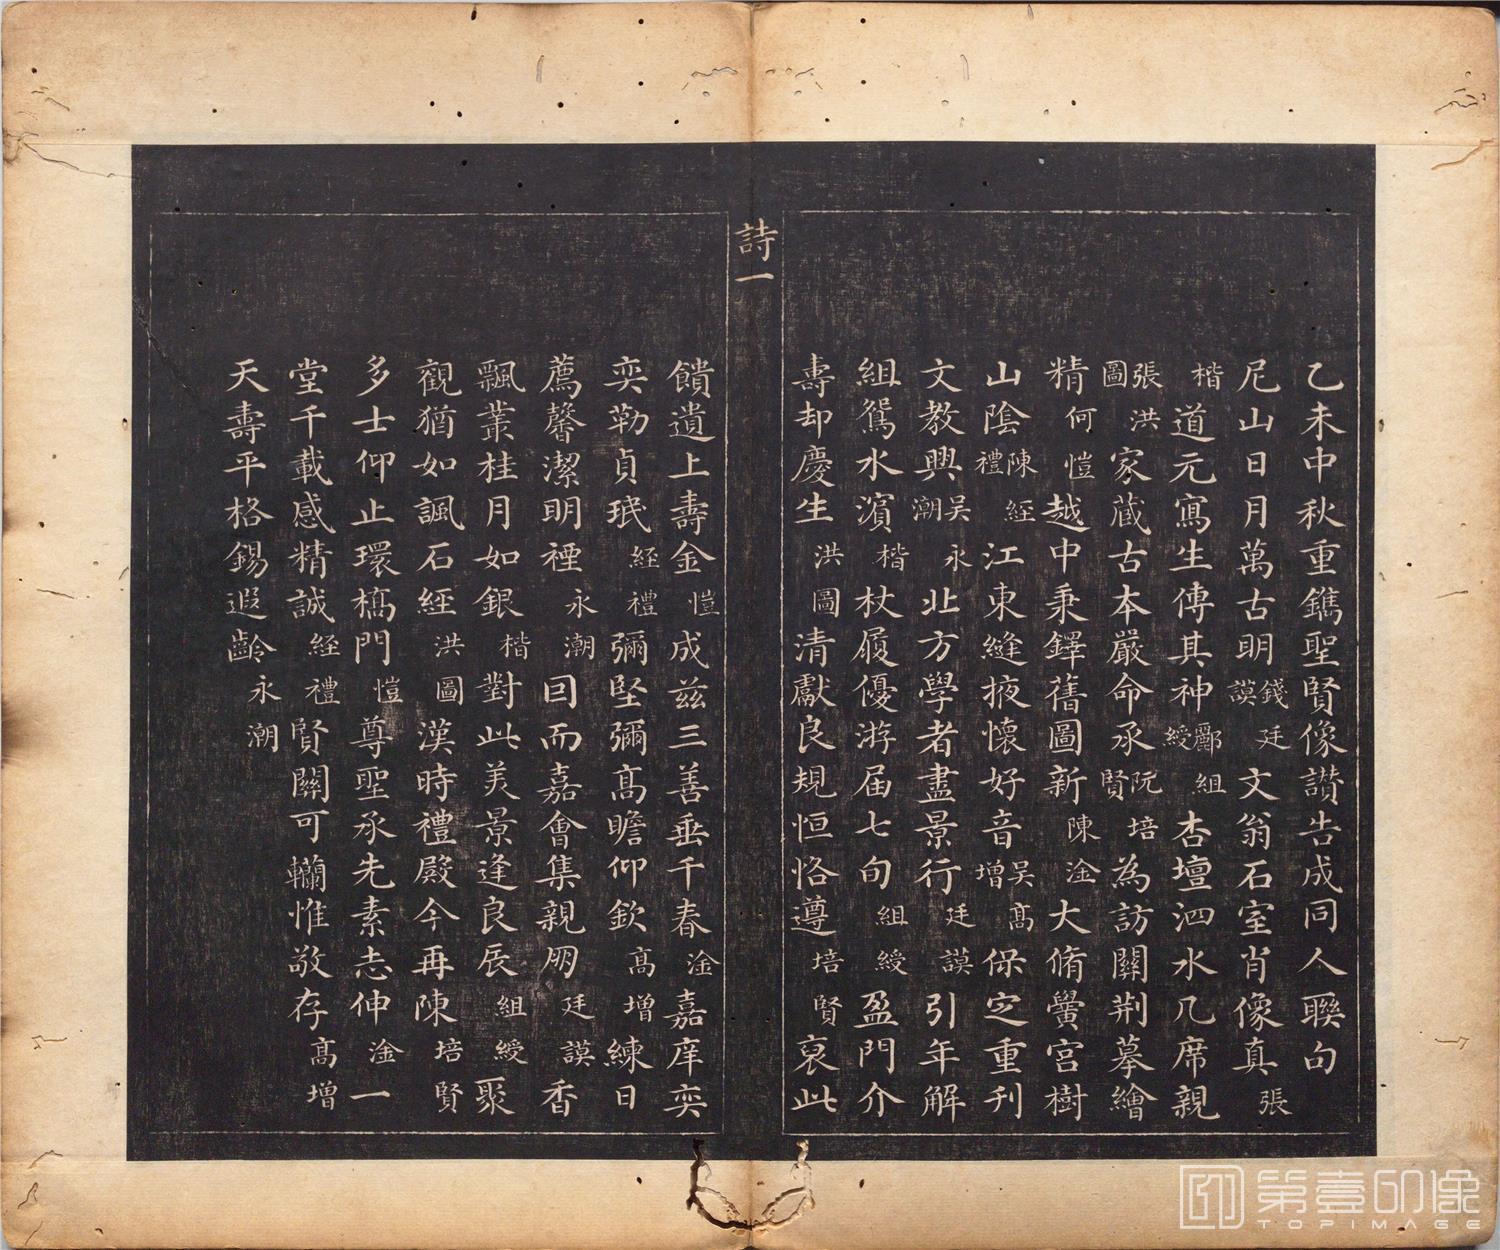 乙未中秋重鐫聖賢像讃告成同人聯句
尼山日月萬古明錢廷謨文翁石室肖像真張
楷道元寫生傳其神酈組綬杏壇泗水几席親
張洪圖家藏古本嚴命承阮培賢為訪關荊摹繪
精何愷越中秉鐸舊圖新陳淦大脩黌宮樹
山陰陳經禮江東縫掖懷好音吳高增保定重刊
文教興吳永潮北方學者盡景行廷謨引年解
組鴛水濱楷杖履優游届七旬組綬盈門介
壽却慶生洪圖清獻良規恒恪遵培賢裒此
詩一
饋遺上壽金愷成茲三善垂千春淦嘉庠奕
奕勒貞珉經禮彌堅彌高瞻仰欽高增練日
薦馨潔明禋永潮囙而嘉會集親朋廷謨香
飄叢桂月如銀楷對此美景逢良辰組綬聚
觀猶如諷石經洪圖漢時禮殿今再陳培賢
多士仰止環橋門愷尊聖承先素志伸淦一
堂千載感精誠經禮賢關可轥惟敬存高增
天壽平格錫遐齡永潮
第壹印像
TOPIMAGE